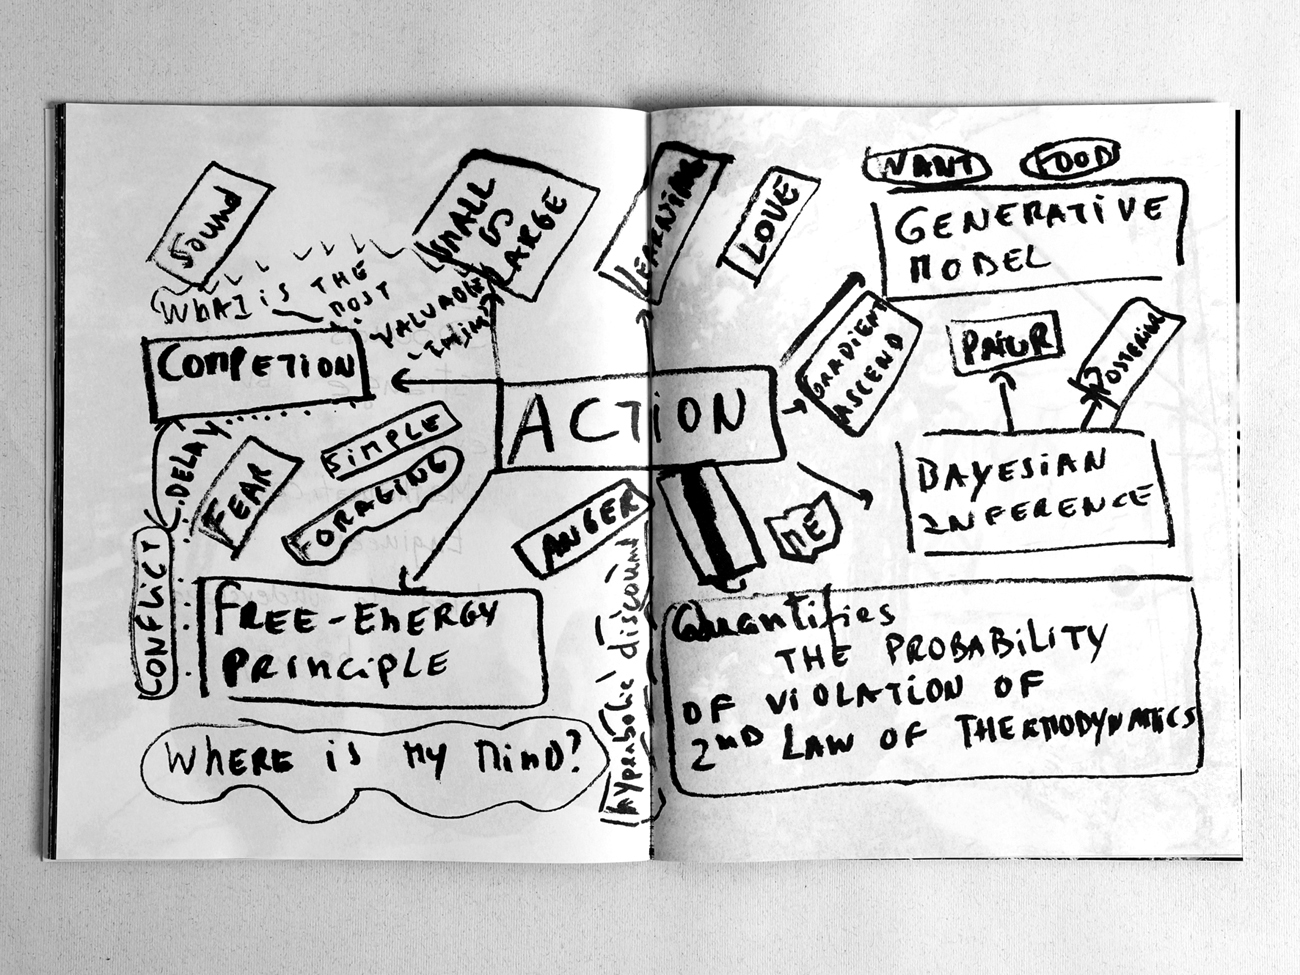 Sound
SMALL
IS
LARGE
WhAT is THE
MOST
VALUABLE
COMPETION
DELAY
FEAR
SIMPLE
FORAGING
CONFLICT
FREE-ENERGY
PRINCIPLE
WHERE is MY MIND?
LEARNING
LOVE
WANT
FOOD
GENERATIVE
MODEL
ACTION
GRADIENT
ASCEND
PRIOR
POSTERIOR
BAYESIAN
INFERENCE
ANGER
ME
hyparbolic discound
Quantifies
THE PROBABILITY
OF VIOLATION OF
2ND LAW OF THERMODYNAMICS